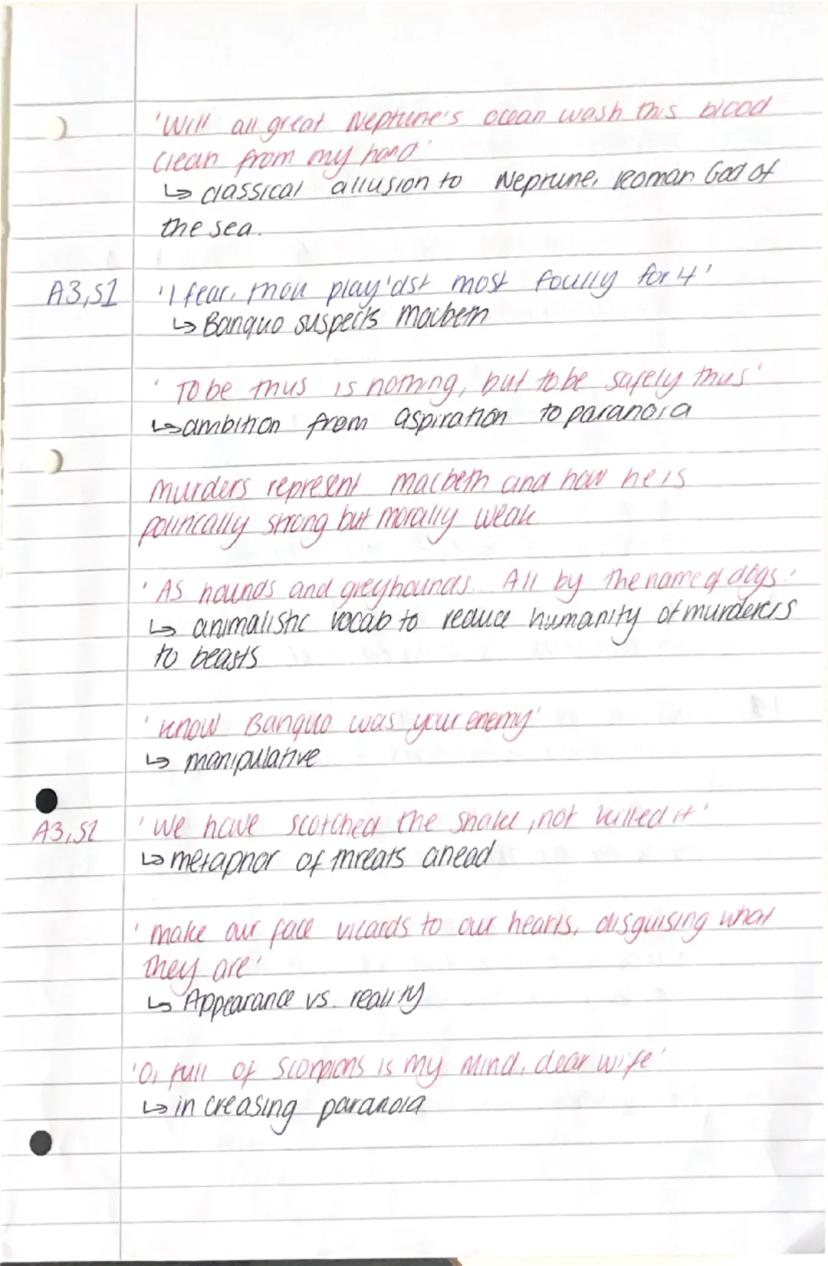 'Will all great Neptune's ocean wash this blood
clean from my hand'
↳ classical allusion to Neptune, Roman God of
the sea.
A3,S1 'I fear, thou play'dst most foully for 4'
↳ Banquo suspects Macbeth
'To be thus is nothing, but to be safely thus'
↳ ambition from aspiration to paranoia
Murders represent Macbeth and how he is
politically strong but morally weak
'As hounds and greyhounds... All by the name of dogs.'
↳ animalistic vocab to reduce humanity of murderers
to beasts
'Know Banquo was your enemy'
↳ manipulative
A3,S2 'We have scotched the snake, not killed it'
↳ metaphor of threats ahead
'make our face vizards to our hearts, disguising what
they are'
↳ Appearance vs. reality
'O, full of scorpions is my mind, dear wife'
↳ increasing paranoia